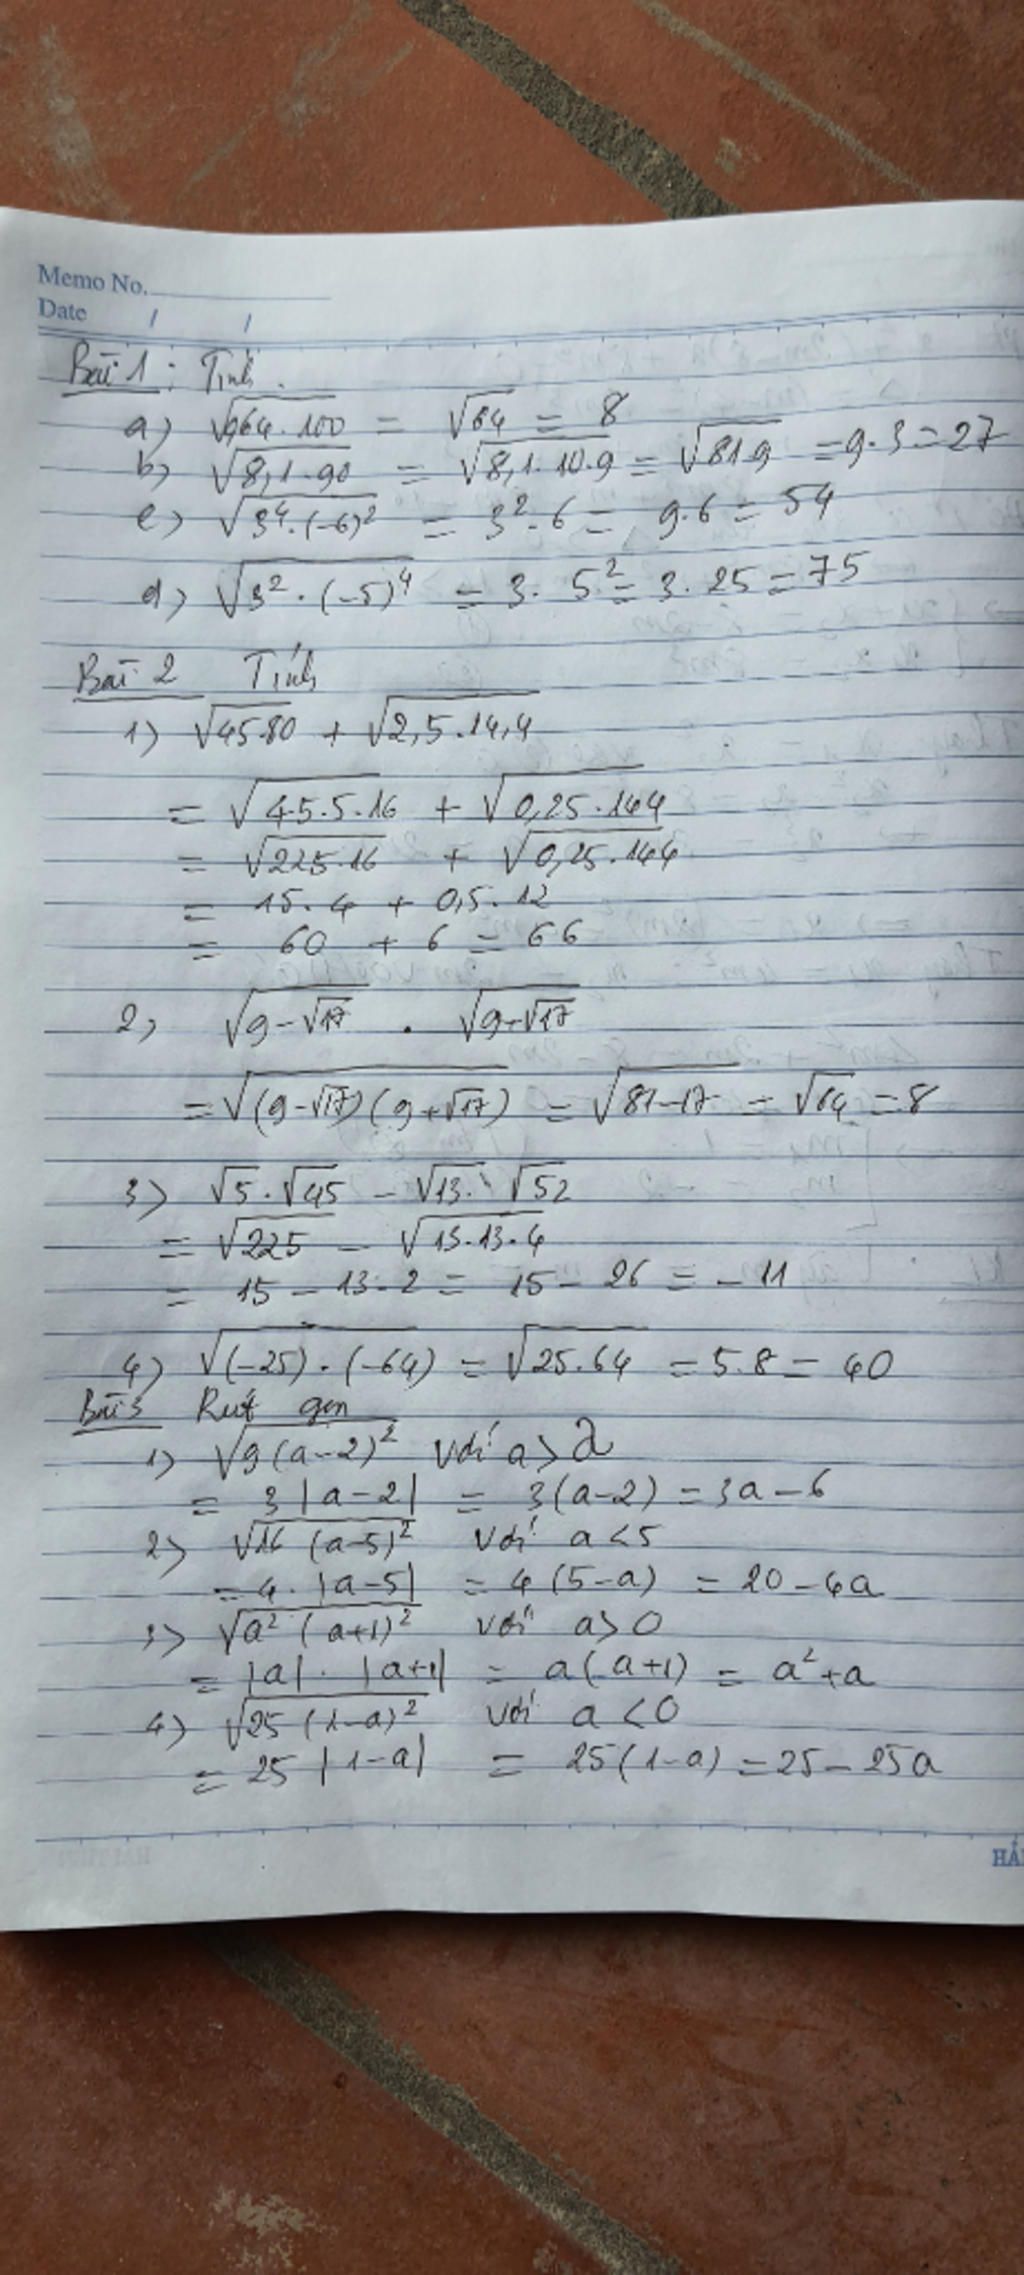 Memo No.
Date / /
Bài 1 : Tính.
a) √0,64.100 = √64 = 8
b) √8,1.90 = √8,1.10.9 = √81.9 = 9.3 = 27
c) √3⁴.(-6)² = 3².6 = 9.6 = 54
d) √3².(-5)⁴ = 3.5² = 3.25 = 75
Bài 2 Tính
1) √45.80 + √2,5.14,4
= √45.5.16 + √0,25.144
= √225.16 + √0,25.144
= 15.4 + 0,5.12
= 60 + 6 = 66
2) √9-√17 . √9+√17
= √(9-√17)(9+√17) = √81-17 = √64 = 8
3) √5.√45 - √13.√52
= √225 - √13.13.4
= 15 - 13.2 = 15 - 26 = -11
4) √(-25).(-64) = √25.64 = 5.8 = 40
Bài 3 Rút gọn
1) √9(a-2)² với a>2
= 3|a-2| = 3(a-2) = 3a-6
2) √16(a-5)² với a<5
= 4.|a-5| = 4(5-a) = 20-4a
3) √a²(a+1)² với a>0
= |a|.|a+1| = a(a+1) = a²+a
4) √25(1-a)² với a<0
= 25|1-a| = 25(1-a) = 25-25a